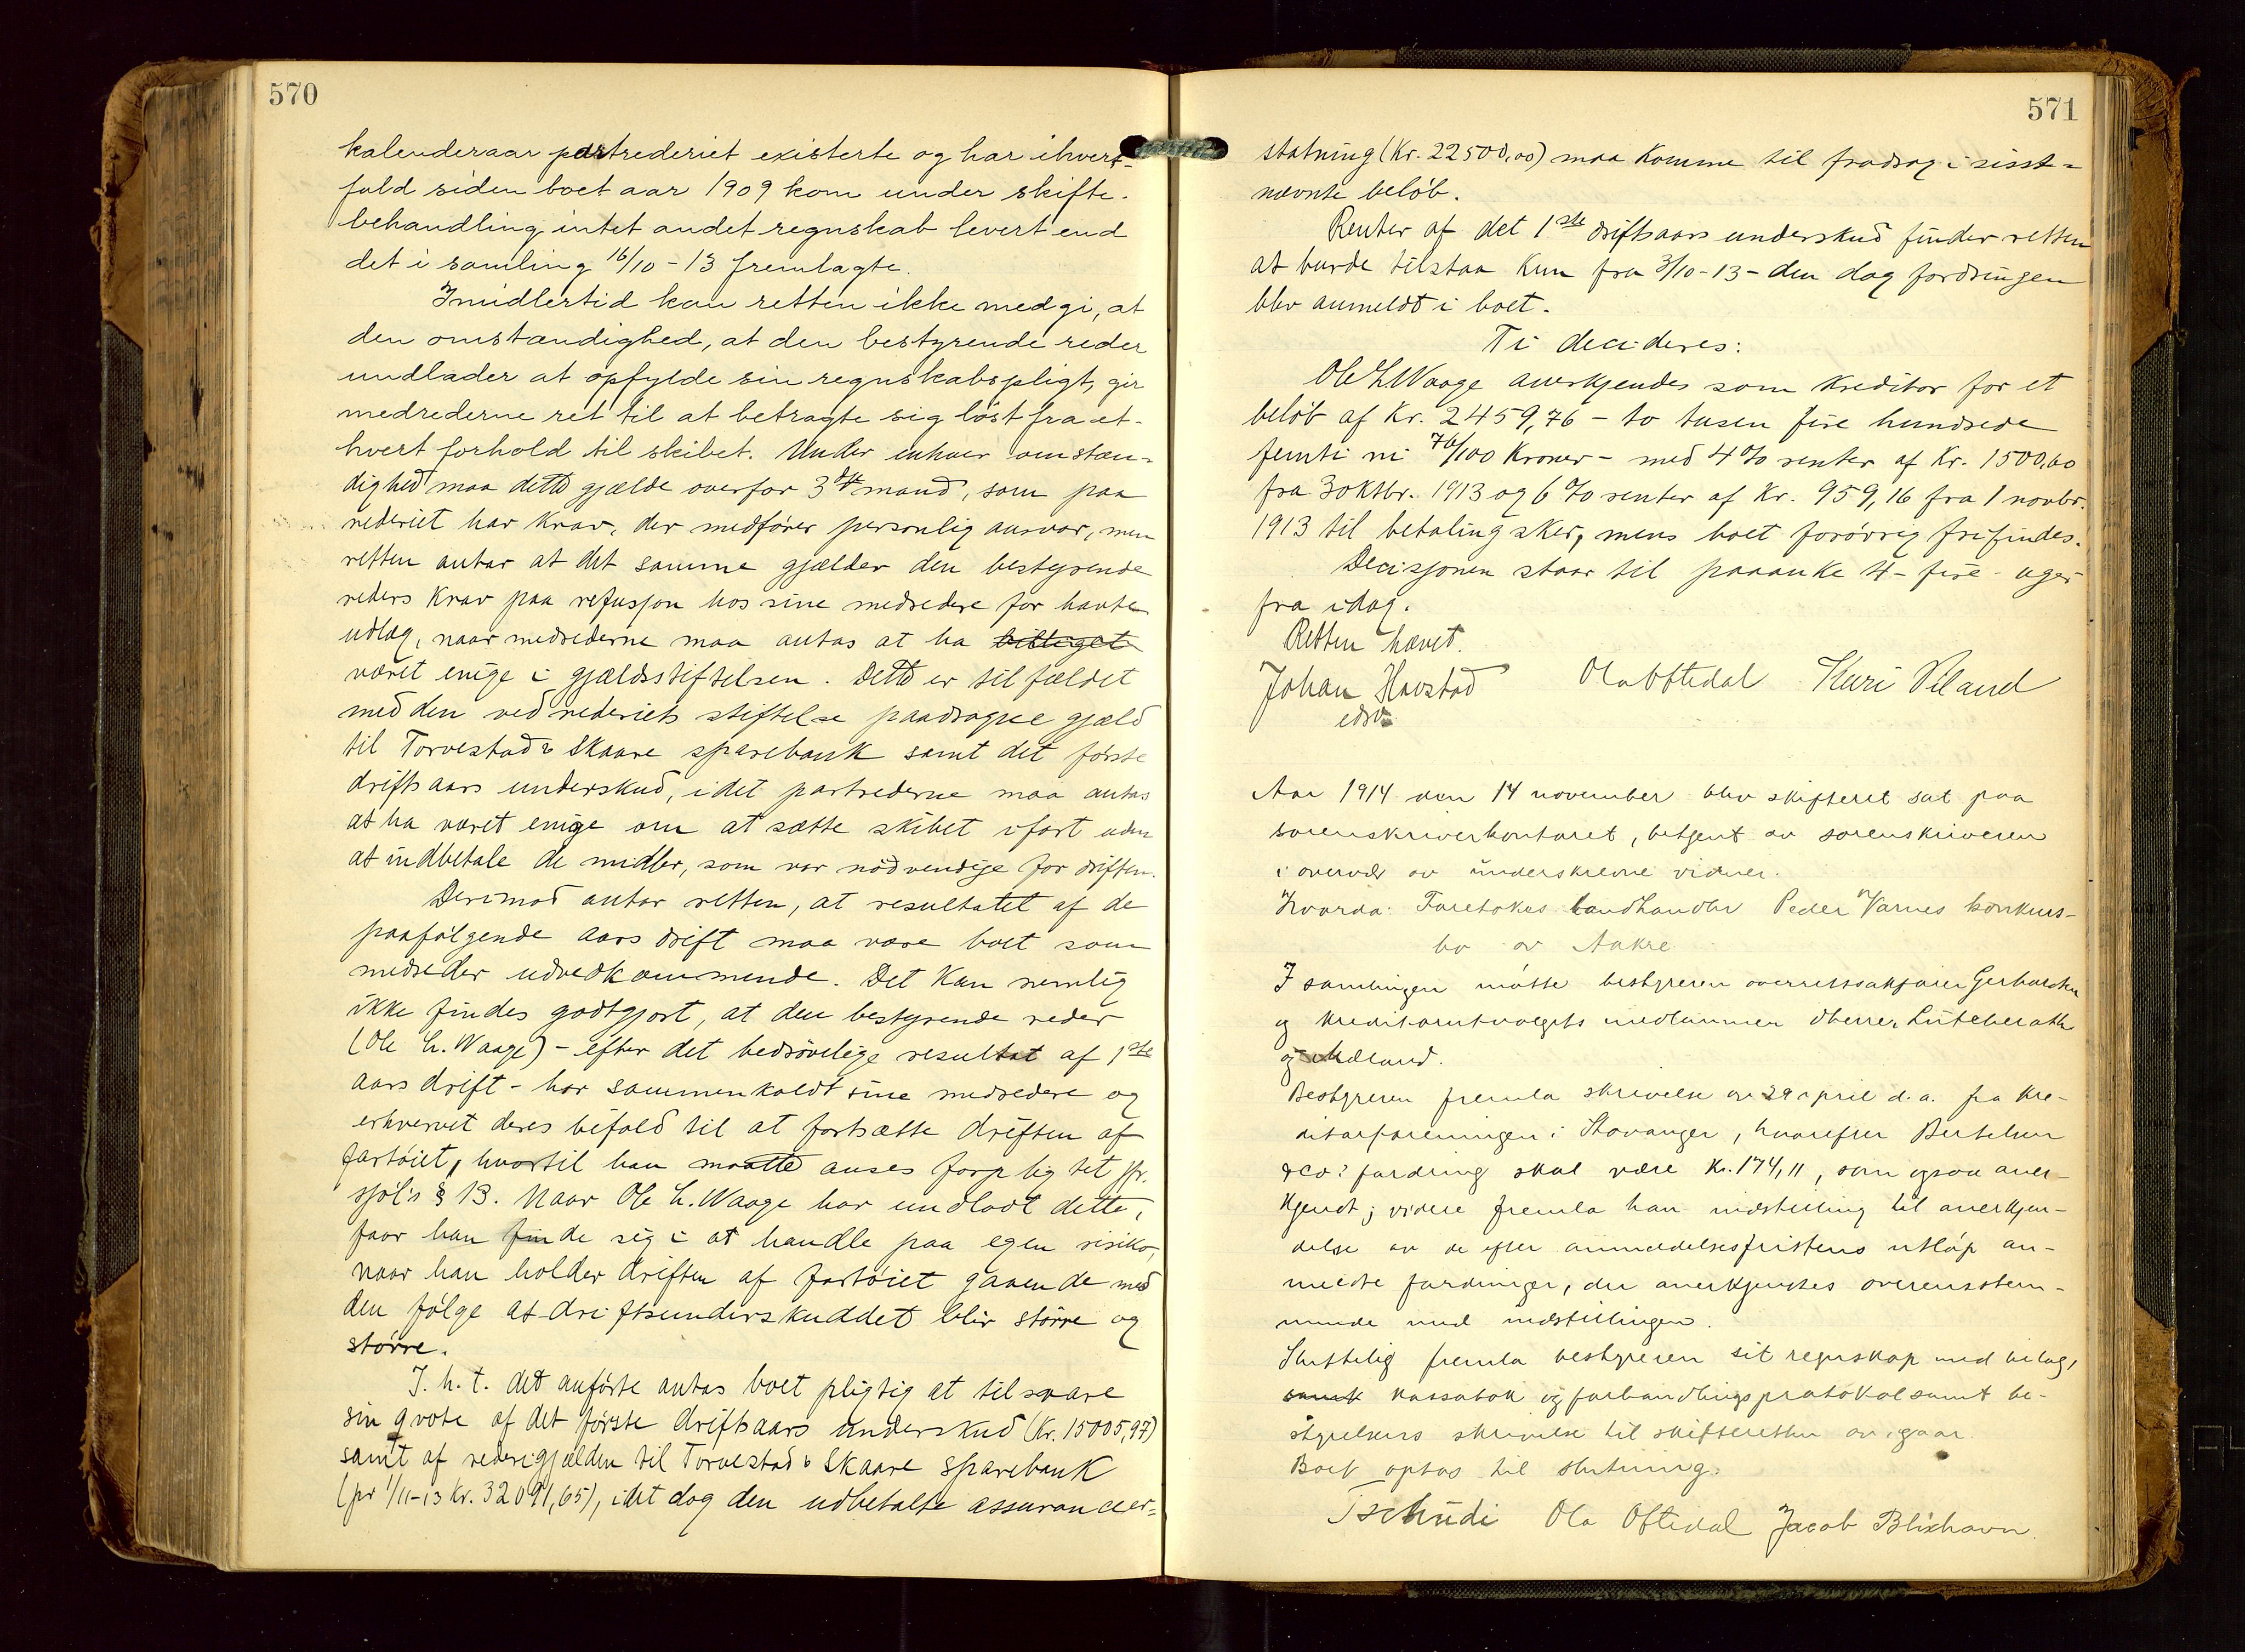 570
kalenderaar partrederiet existerte og har ihvert-
fald siden boet aar 1909 kom under skifte-
behandling intet andet regnskab levert end
det i samling 16/10 - 13 fremlagte.
Imidlertid kan retten ikke medgi, at
den omstændighed, at den bestyrende reder
undlader at opfylde sin regnskabspligt, gir
medrederne ret til at betragte sig løst fra et-
hvert forhold til skibet. Under enhver omstæn-
dighed maa dette gjælde overfor 3die mand, som paa
rederiet har krav, der medfører personlig ansvar, men
retten antar at det samme gjælder den bestyrende
reders krav paa refusjon hos sine medredere for havte
udlæg, naar medrederne maa antas at ha billiget
været enige i gjældsstiftelsen. Dette er tilfældet
med den ved rederiets stiftelse paadragne gjæld
til Torvestad & Skaare sparebank samt det første
driftsaars underskud, idet partrederne maa antas
at ha været enige om at sætte skibet i fart uden
at indbetale de midler, som var nødvendige for driften.
Derimod antar retten, at resultatet af de
paafølgende aars drift maa være boet som
medreder udvedkommende. Det kan nemlig
ikke findes godtgjort, at den bestyrende reder
(Ole L. Waage) - efter det bedrøvelige resultat af 1ste
aars drift - har sammenkaldt sine medredere og
erhvervet deres bifald til at fortsætte driften af
fartøiet, hvortil han maatte anses forpligtet jfr.
sjøl's § 13. Naar Ole L. Waage har undladt dette,
faar han finde sig i at handle paa egen risiko,
naar han holder driften af fartøiet gaaende med
den følge at driftsunderskuddet blir større og
større.
I. h. t. det anførte antas boet pligtig at tilsvare
sin qvote af det første driftsaars underskud (Kr. 15005,97)
samt af rederigjælden til Torvestad & Skaare sparebank
(pr 1/11-13 Kr. 32091,65), idet dog den udbetalte assurancer=
571
statning (Kr. 22500,00) maa komme til fradrag i sisst=
nævnte beløb.
Renter af det 1ste driftsaars underskud finder retten
at burde tilstaa kun fra 3/10-13 - den dag fordringen
blev anmeldt i boet.
Ti decideres:
Ole L Waage anerkjendes som kreditor for et
beløb af Kr. 2459,76 - to tusen fire hundrede
femti ni 76/100 Kroner - med 4% renter af Kr. 1500,60
fra 3 oktbr. 1913 og 6% renter af Kr. 959,16 fra 1 novbr.
1913 til betaling sker, mens boet forøvrig frifindes.
Decisjonen staar til paaanke 4 - fire - uger
fra idag.
Retten hævet.
Johan Havstad Ola Oftedal Viland
edsv.
Aar 1914 den 14 november blev skifteret sat paa
sorenskriverkontoret, betjent av sorenskriveren
i overvær av underskrevne vidner.
Hvorda: Foretokes landhandler Peder Varnes konkurs-
bo av Aakre
I samlingen møtte bestyreren overretssakfører
og kreditorutvalgets medlemmer dherrer Lütcherath
og Mæland.
Bestyreren fremla skrivelse av 29 april d.a. fra Kre-
ditorforeningen i Stavanger, hvorefter Bertelsen
& co's fordring skal være Kr. 174,11, som ogsaa aner-
kjendt; videre fremla han indstilling til anerkjen-
delse av de efter anmeldelsesfristens utløp an-
meldte fordringer, der anerkjendtes overensstem-
mende med indstillingen.
Sluttelig fremla bestyreren sit regnskap med bilag,
samt kassabok og forhandlingsprotokol samt be-
styrelsens skrivelse til skifteretten av igaar.
Boet optas til slutning.
Tschudi Ola Oftedal Jacob Blixhavn.